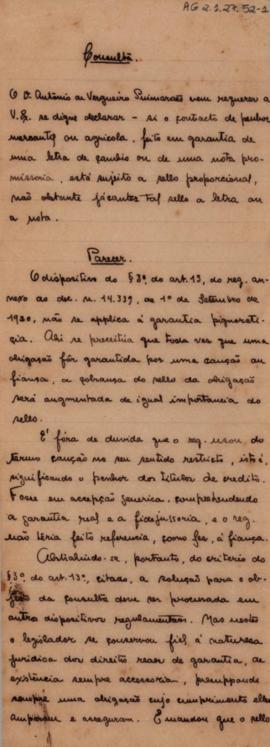 AG 2.1.27.52-1
Consulta.
O Dr. Antônio de Vergueiro Guimarães vem requerer a
V. Ex. se digne declarar - si o contracto de penhor
mercantil ou agricola, feito em garantia de
uma letra de cambio ou de uma nota pro-
missoria, está sujeito a sello proporcional,
não obstante já conter tal sello a letra ou
a nota.
Parecer.
O dispositivo do § 3º, do art. 13, do reg. an-
nexo ao dec. n. 14.339, de 1º de Setembro de
1920, não se applica á garantia pignorati-
cia. Ahi se preceitúa que toda vez que uma
obrigação fôr garantida por uma caução ou
fiança, a cobrança do sello da obrigação
será augmentada de igual importancia do
sello.
É fóra de duvida que o reg. usou, do
termo caução no seu sentido restricto, isto é,
significando o penhor dos titulos de credito.
Fosse em accepção generica, comprehendendo
a garantia real e a fidejussoria, e o reg.
não teria feito referencia, como fez, á fiança.
Abstrahindo-se, portanto, do criterio do
§ 3º, do art. 13º, citado, a solução para o ob-
jecto da consulta deve ser procurada em
outro dispositivo regulamentar. Mas nesto
o legislador se conservou fiel á natureza
juridica dos direitos reaes de garantia, de
existencia sempre accessoria, presuppondo
sempre uma obrigação cujo cumprimento elles
amparam e asseguram. E mandou que o sello